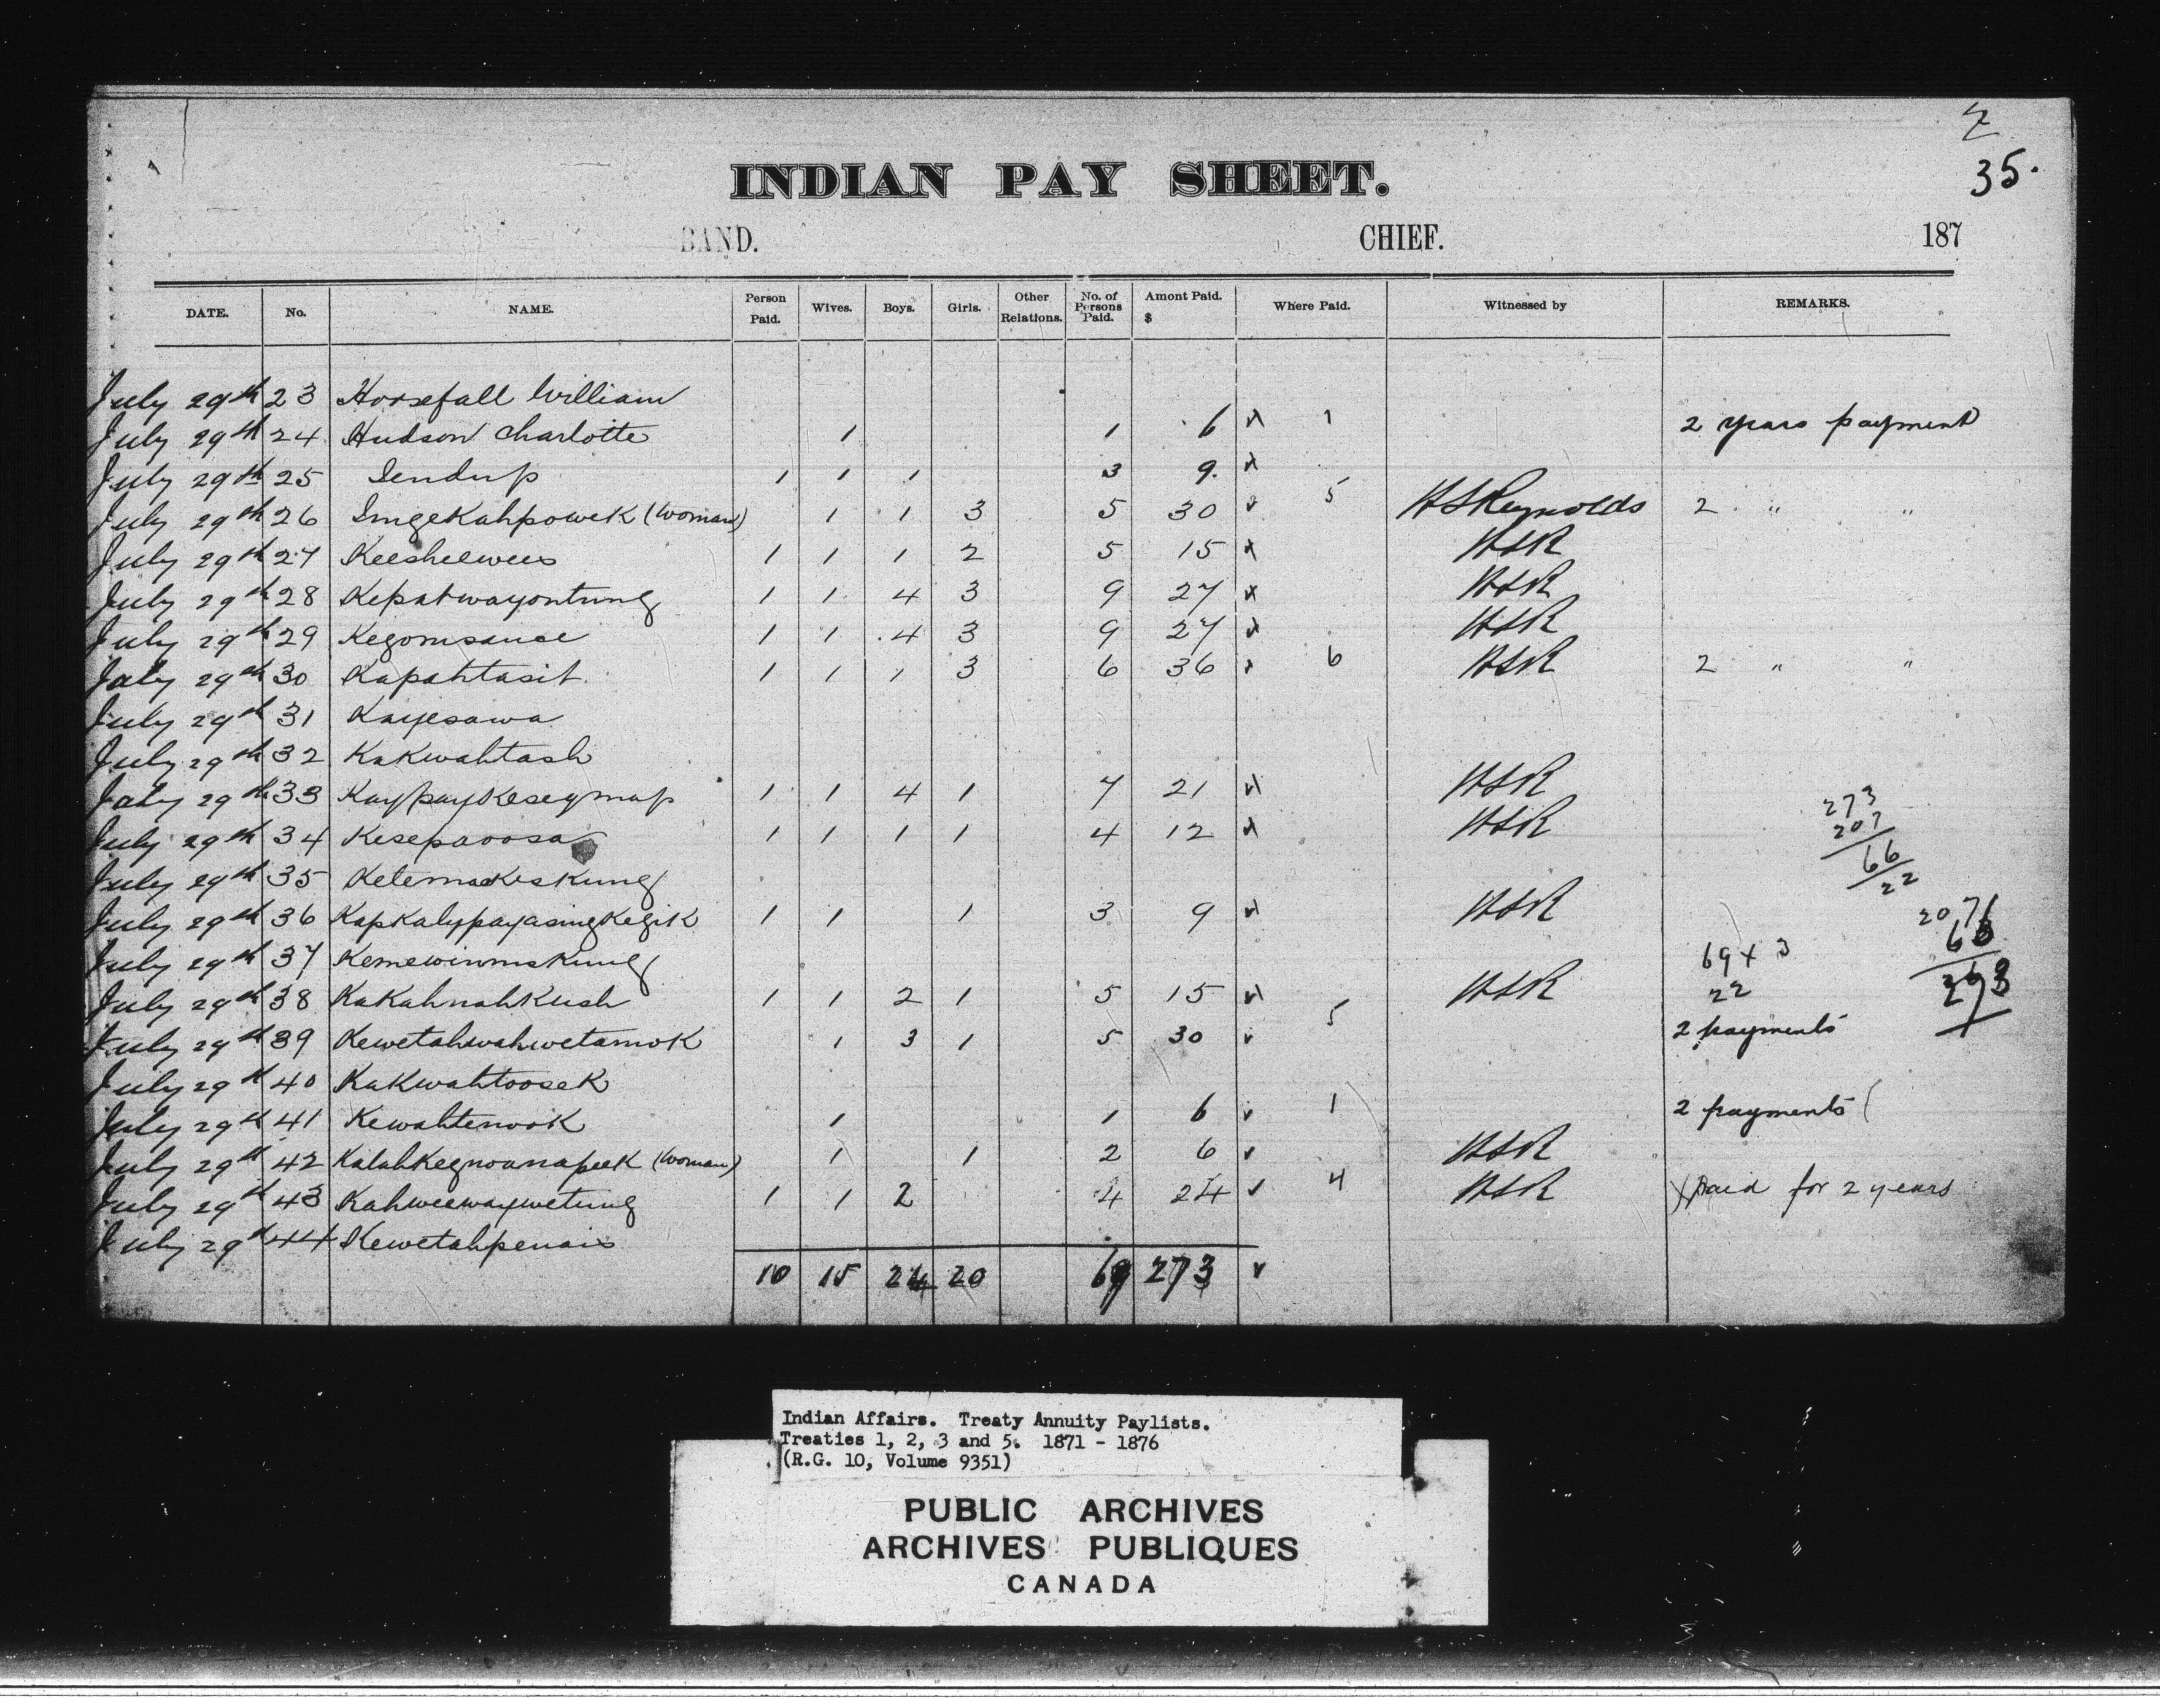 35.
INDIAN PAY SHEET.
BAND. CHIEF. 187
DATE. No. NAME. Person Paid. Wives. Boys. Girls. Other Relations. No. of Persons Paid. Amont Paid. $ Where Paid. Witnessed by REMARKS.
July 29th 23 Horsefall William
July 29th 24 Hudson Charlotte 1 1 6 1 2 years payment
July 29th 25 Iendup 1 1 1 3 9.
July 29th 26 ImgeKahpoweK (Woman) 1 1 3 5 30 5 HSReynolds 2 " "
July 29th 27 Keesheewees 1 1 1 2 5 15 HSR
July 29th 28 Kepatwayontung 1 1 4 3 9 27 HSR
July 29th 29 Kegomsance 1 1 4 3 9 27 HSR
July 29th 30 Kapahtasit 1 1 1 3 6 36 6 HSR 2 " "
July 29th 31 Kayesawa
July 29th 32 Kakwahtash
July 29th 33 KaypayKeseymap 1 1 4 1 7 21 HSR
July 29th 34 Kesepaoosa 1 1 1 1 4 12 HSR
273
207
66
22
July 29th 35 KetemaKesKung
July 29th 36 KapKalypayasingKegiK 1 1 1 3 9 HSR
207
July 29th 37 KemewinmsKung
69 x 3
22
273
July 29th 38 KaKahnahKush 1 1 2 1 5 15 HSR
July 29th 39 KewetahwahwetamoK 1 3 1 5 30 5 2 payments
July 29th 40 KaKwahtooseK
July 29th 41 KewahtenooK 1 1 6 1 2 payments
July 29th 42 (Woman) 1 1 2 6 HSR
July 29th 43 Kahweewaywetung 1 1 2 4 24 4 HSR Paid for 2 years
July 29th 44 Kewetahpenais
10 15 24 20 69 273
Indian Affairs. Treaty Annuity Paylists.
Treaties 1, 2, 3 and 5. 1871 - 1876
(R.G. 10, Volume 9351)
PUBLIC ARCHIVES
ARCHIVES PUBLIQUES
CANADA